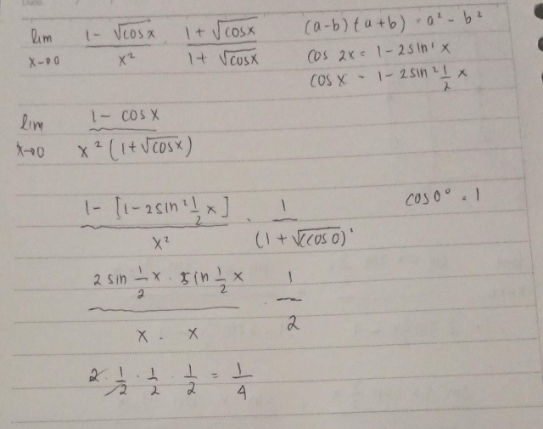 lim x→0 (1 - √cosx)/x² · (1 + √cosx)/(1 + √cosx)
(a-b)(a+b) = a² - b²
cos 2x = 1 - 2sin² x
cos x = 1 - 2sin² 1/2 x
lim x→0 (1 - cosx)/(x² (1 + √cosx))
(1 - [1 - 2sin² 1/2 x])/x² · 1/(1 + √(cos 0))
cos 0° = 1
(2 sin 1/2 x · sin 1/2 x)/(x · x) · 1/2
2 · 1/2 · 1/2 · 1/2 = 1/4